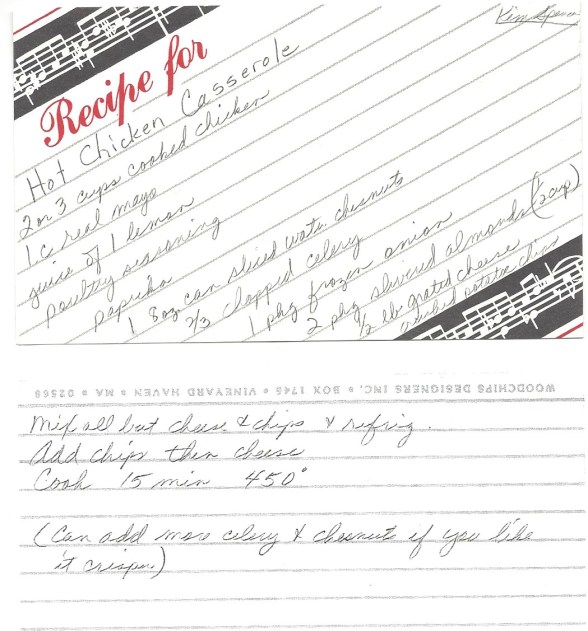 Kim Spence
Recipe for
Hot Chicken Casserole
2 or 3 cups cooked chicken
1 c real mayo
juice of 1 lemon
poultry seasoning
paprika
1 8 oz can sliced water chesnuts
2/3 chopped celery
1 pkg frozen onion
2 pkg slivered almonds (1/2 cup)
1/2 lb grated cheese
crushed potato chips
WOODCHIPS DESIGNERS INC. • BOX 1746 • VINEYARD HAVEN • MA • 02568
Mix all but cheese & chips & refrig.
Add chips then cheese
Cook 15 min 450°
(Can add more celery & chesnuts if you like
it crisper)